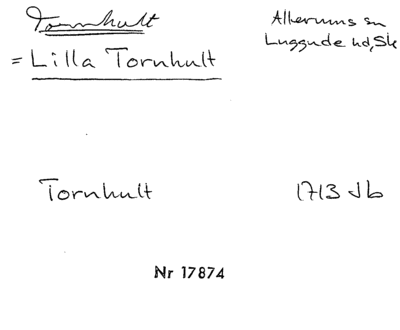 Tornhult
= Lilla Tornhult
Allerums sn
Luggude hd, Sk
Tornhult 1713 Jb
Nr 17874